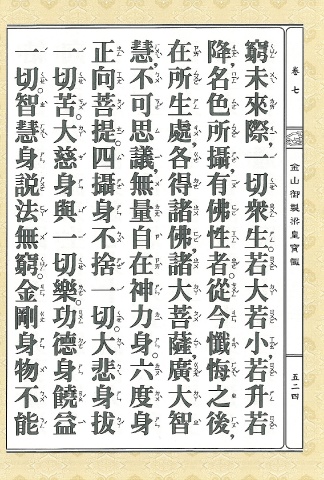 卷七
金山御製梁皇寶懺
五二四
窮未來際,一切眾生。若大若小,若升若
降,名色所攝,有佛性者。從今懺悔之後,
在所生處,各得諸佛諸大菩薩,廣大智
慧,不可思議,無量自在神力身。六度身
正向菩提。四攝身不捨一切。大悲身拔
一切苦。大慈身與一切樂。功德身饒益
一切。智慧身說法無窮。金剛身物不能